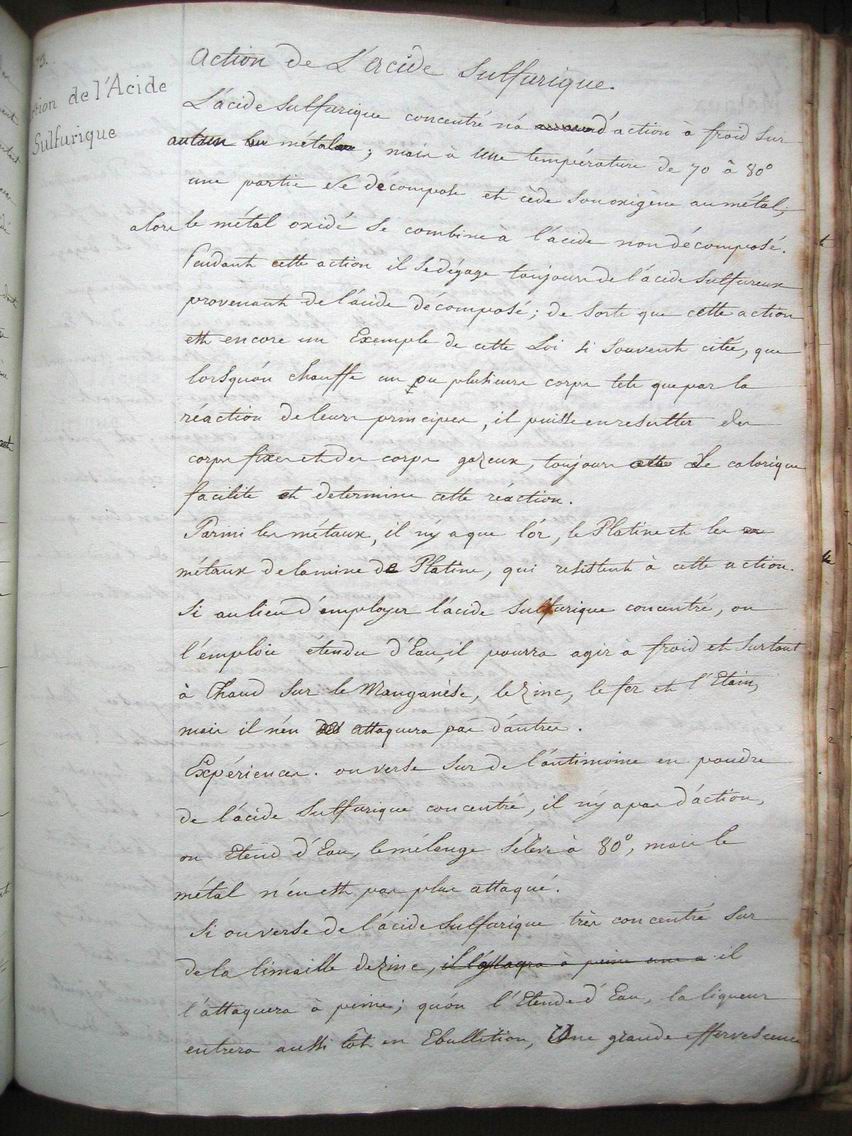 Action de L'acide Sulfurique.
tion de l'Acide
Sulfurique
L'acide Sulfurique concentré n'a d'action à froid sur
aucun métal ; mais à une température de 70 à 80°
une partie se décompose et cède son oxigène au métal;
alors le métal oxidé se combine à l'acide non décomposé.
Pendant cette action il se dégage toujours de l'acide sulfureux
provenant de l'acide décomposé; de sorte que cette action
est encore un Exemple de cette Loi si souvent citée, que
lorsqu'on chauffe un ou plusieurs corps tels que par la
réaction de leurs principes, il puisse en resulter des
corps fixes et des corps gazeux, toujours Le calorique
facilite et determine cette réaction.
Parmi les métaux, il n'y a que l'or, le Platine et les
métaux de la mine de Platine, qui resistent à cette action.
Si au lieu d'employer l'acide Sulfurique concentré, on
l'emploie étendu d'Eau, il pourra agir à froid et surtout
à Chaud sur le Manganèse, le Zinc, le fer et l'Etain,
mais il n'en attaquera pas d'autres.
Expériences. on verse sur de l'antimoine en poudre
de l'acide Sulfurique concentré, il n'y a pas d'action,
on Etend d'Eau, le mélange s'élève à 80°, mais le
métal n'en est pas plus attaqué.
Si on verse de l'acide Sulfurique très concentré sur
de la limaille de Zinc, il l'attaqra à peine il
l'attaquera à peine; qu'on l'Etende d'Eau, la liqueur
entrera aussi tôt en Ebullition, Une grande effervescence